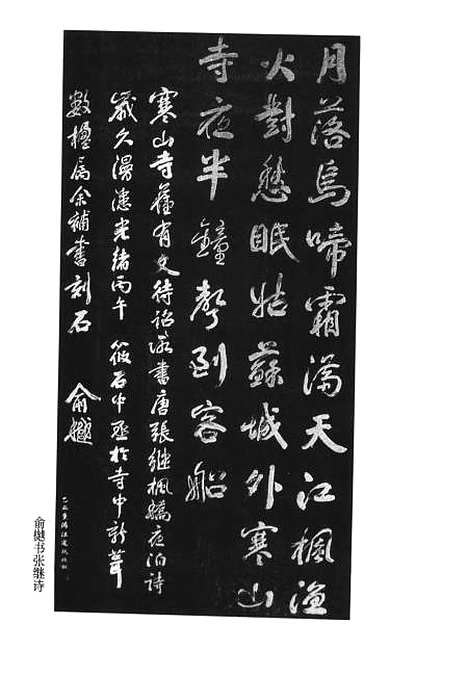 月落烏啼霜滿天江楓漁
火對愁眠姑蘇城外寒山
寺夜半鐘聲到客船
寒山寺舊有文待詔所書唐張繼楓橋夜泊詩
歲久漫漶光緒丙午筱石中丞於寺中新葺
數楹屬余補書刻石
俞樾
俞樾书张继诗